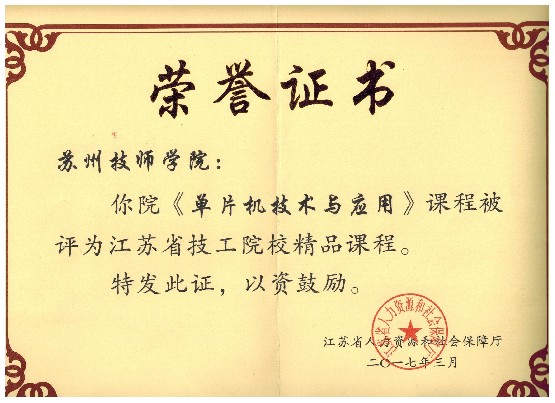 荣誉证书
苏州技师学院：
你院《单片机技术与应用》课程被
评为江苏省技工院校精品课程。
特发此证，以资鼓励。
江苏省人力资源和社会保障厅
江苏省人力资源和社会保障厅
二〇一七年三月